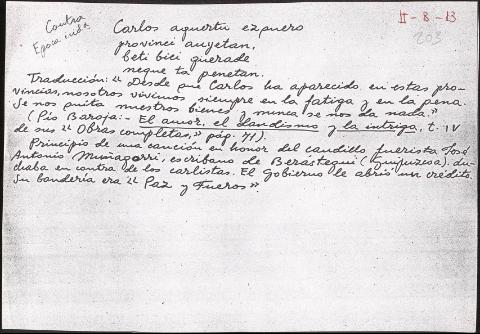 Contra
Epoca
II-8-13
203
Carlos aguertu ezquero
provinci auyetan,
beti bici guerade
neque ta penetan.
Traducción: "Desde que Carlos ha aparecido en estas pro-
vincias, nosotros vivimos siempre en la fatiga y en la pena.
Se nos quita nuestros bienes y nunca se nos da nada."
(Pío Baroja:- El amor, el dandismo y la intriga, t. IV
de sus "Obras completas," pág. 71).
Principio de una canción en honor del caudillo fuerista José
Antonio Muñagorri, escribano de Berástegui (Guipúzcoa). lu-
chaba en contra de los carlistas. El Gobierno le abrió un crédito.
Su bandería era "Paz y Fueros".